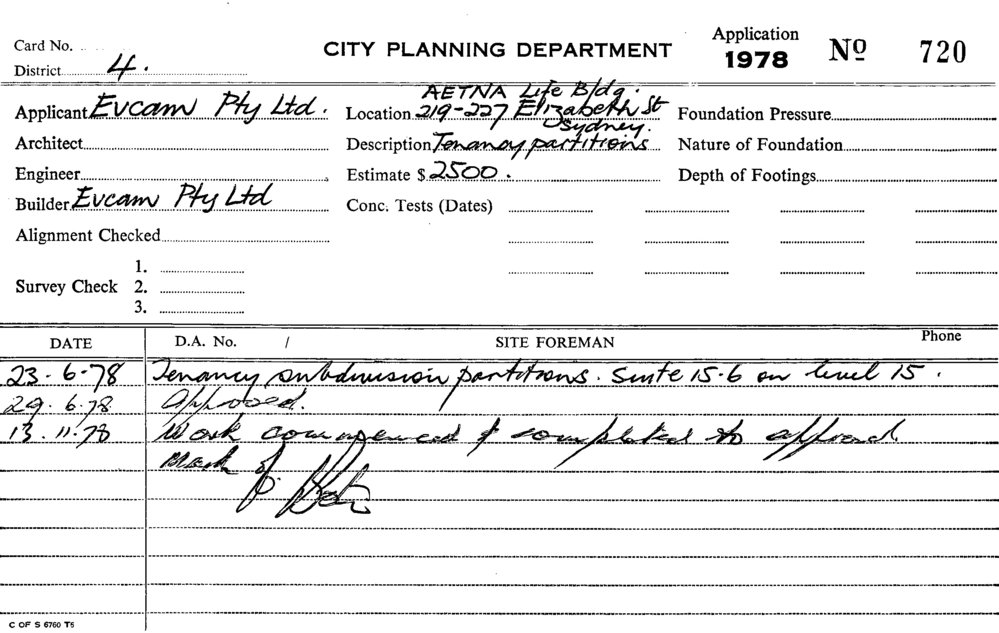 Card No.
CITY PLANNING DEPARTMENT
Application
1978
No 720
District 4.
Applicant Evcam Pty Ltd.
Location AETNA Life Bldg.
219-227 Elizabeth St
Sydney.
Foundation Pressure
Architect
Description Tenancy partitions
Nature of Foundation
Engineer
Estimate $ 2500.
Depth of Footings
Builder Evcam Pty Ltd
Conc. Tests (Dates)
Alignment Checked
1.
Survey Check 2.
3.
DATE D.A. No. / SITE FOREMAN Phone
23.6.78 Tenancy subdivision partitions. Suite 15.6 on level 15.
29.6.78 Approved.
13.11.78 Work commenced & completed to approval
C OF S 6760 T5